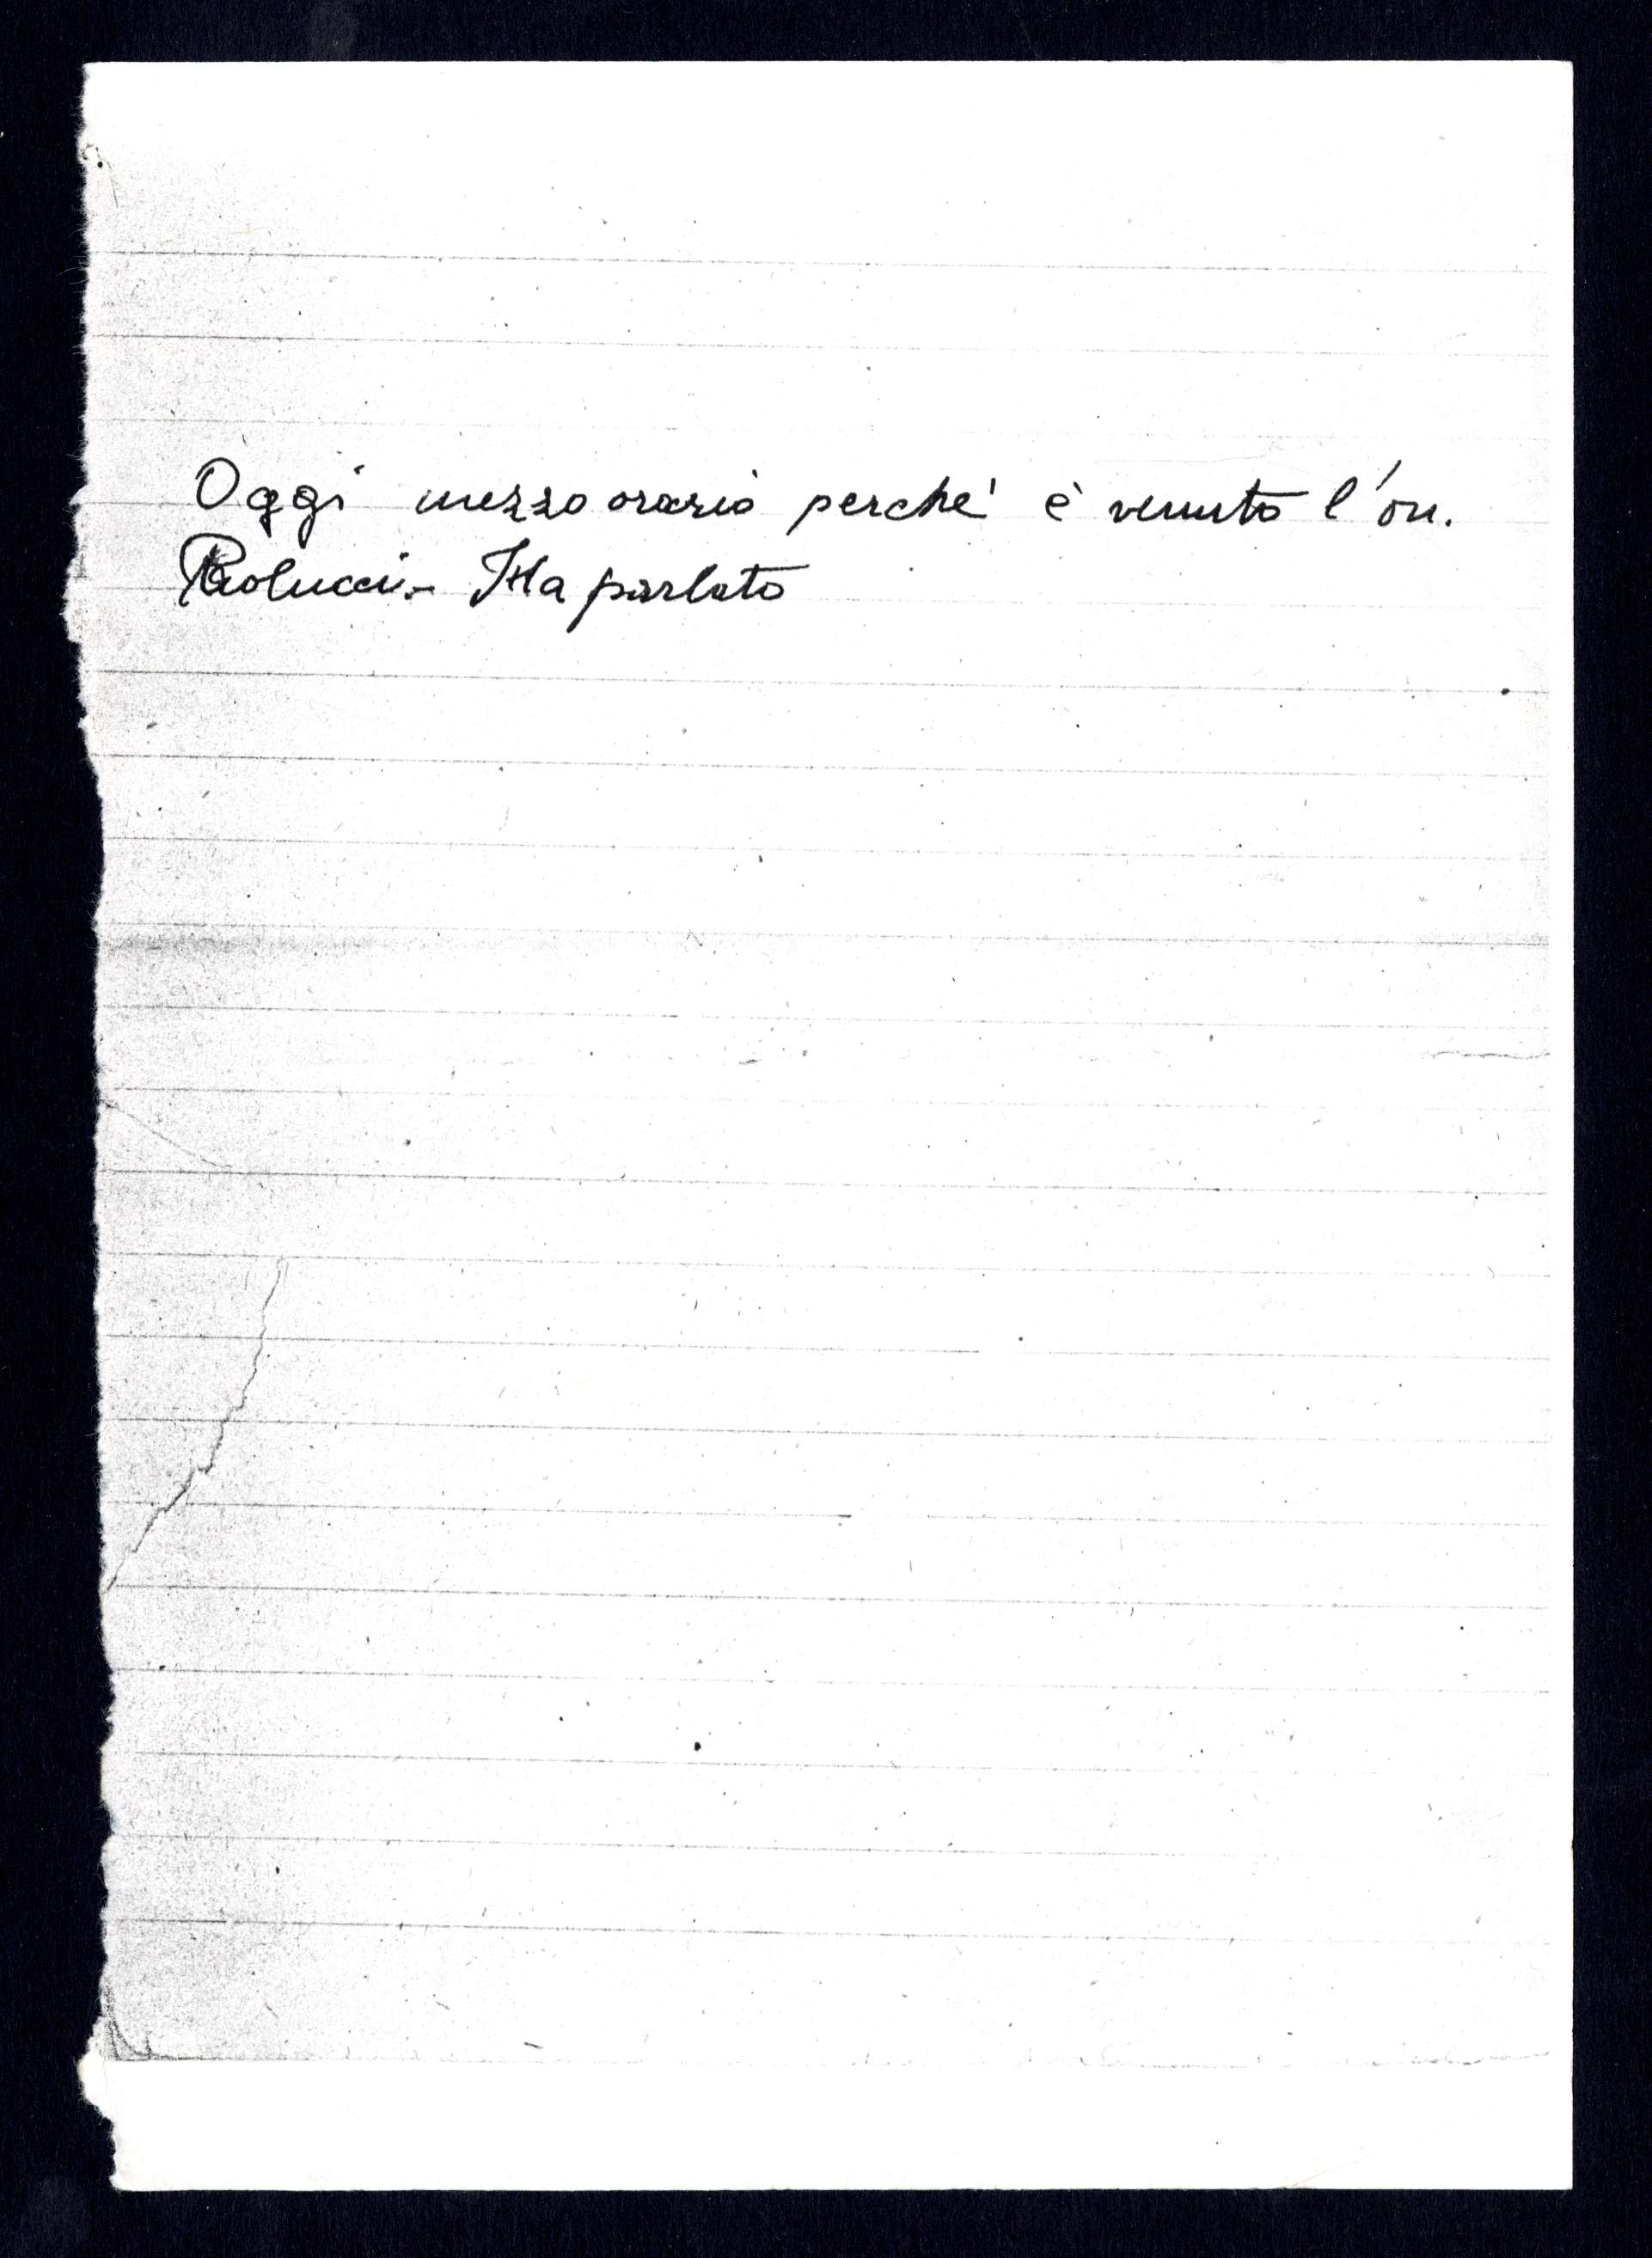 Oggi mezzo orario perchè è venuto l'on.
Paolucci.- Ha parlato